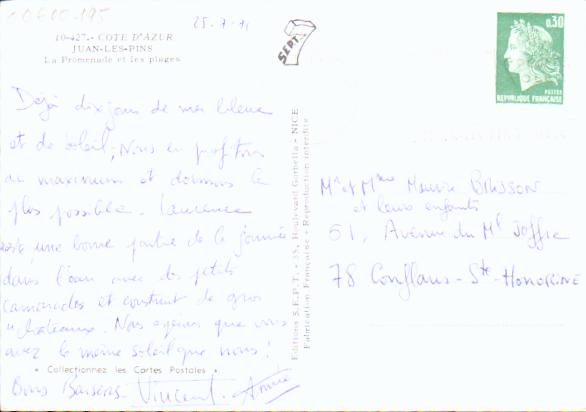 00600 195
25-7-71
10-427. - COTE D'AZUR
JUAN-LES-PINS
La Promenade et les plages
SEPT
0,30
POSTES
REPUBLIQUE FRANÇAISE
Déjà dix jours de mer bleue
et de soleil, Nous en profitons
au maximum et dormons le
plus possible. Laurence
une bonne partie de la journée
dans l'eau avec des petits
camarades et construit de gros
"châteaux. Nous espérons que vous
avez le même soleil que nous!
« Collectionnez les Cartes Postales »
Bons Baisers. Vincent. Annie
Editions S.E.P.T. - 35, Boulevard Gorbella - NICE
Fabrication Française - Reproduction interdite
Mr et Mme Maurice BRISSON
et leurs enfants
51, Avenue du Ml Joffre
78 Conflans-Ste-HONORINE